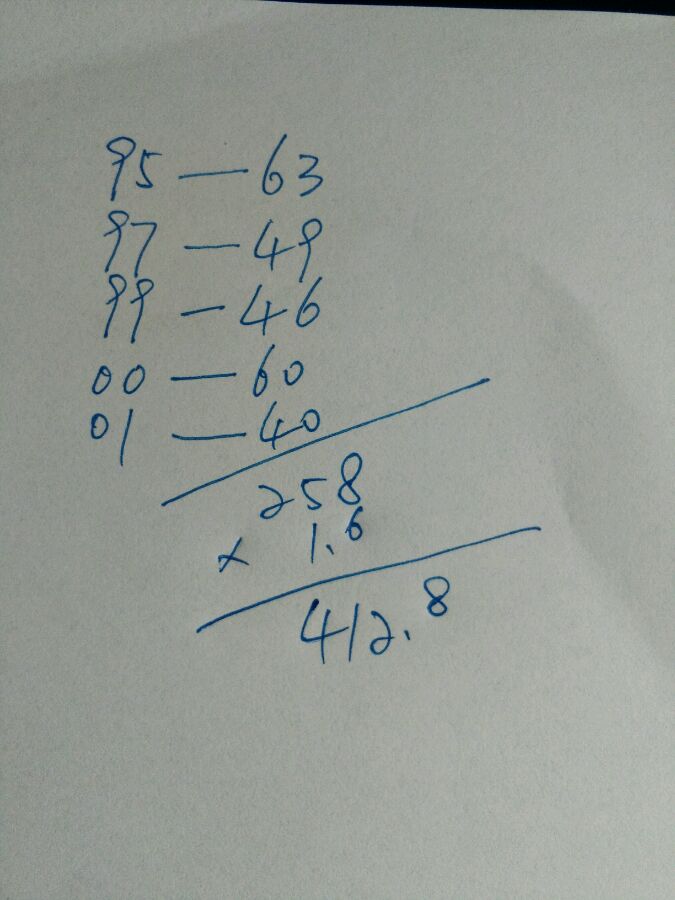 95 — 63
97 — 49
99 — 46
00 — 60
01 — 40
258
x 1.6
412.8